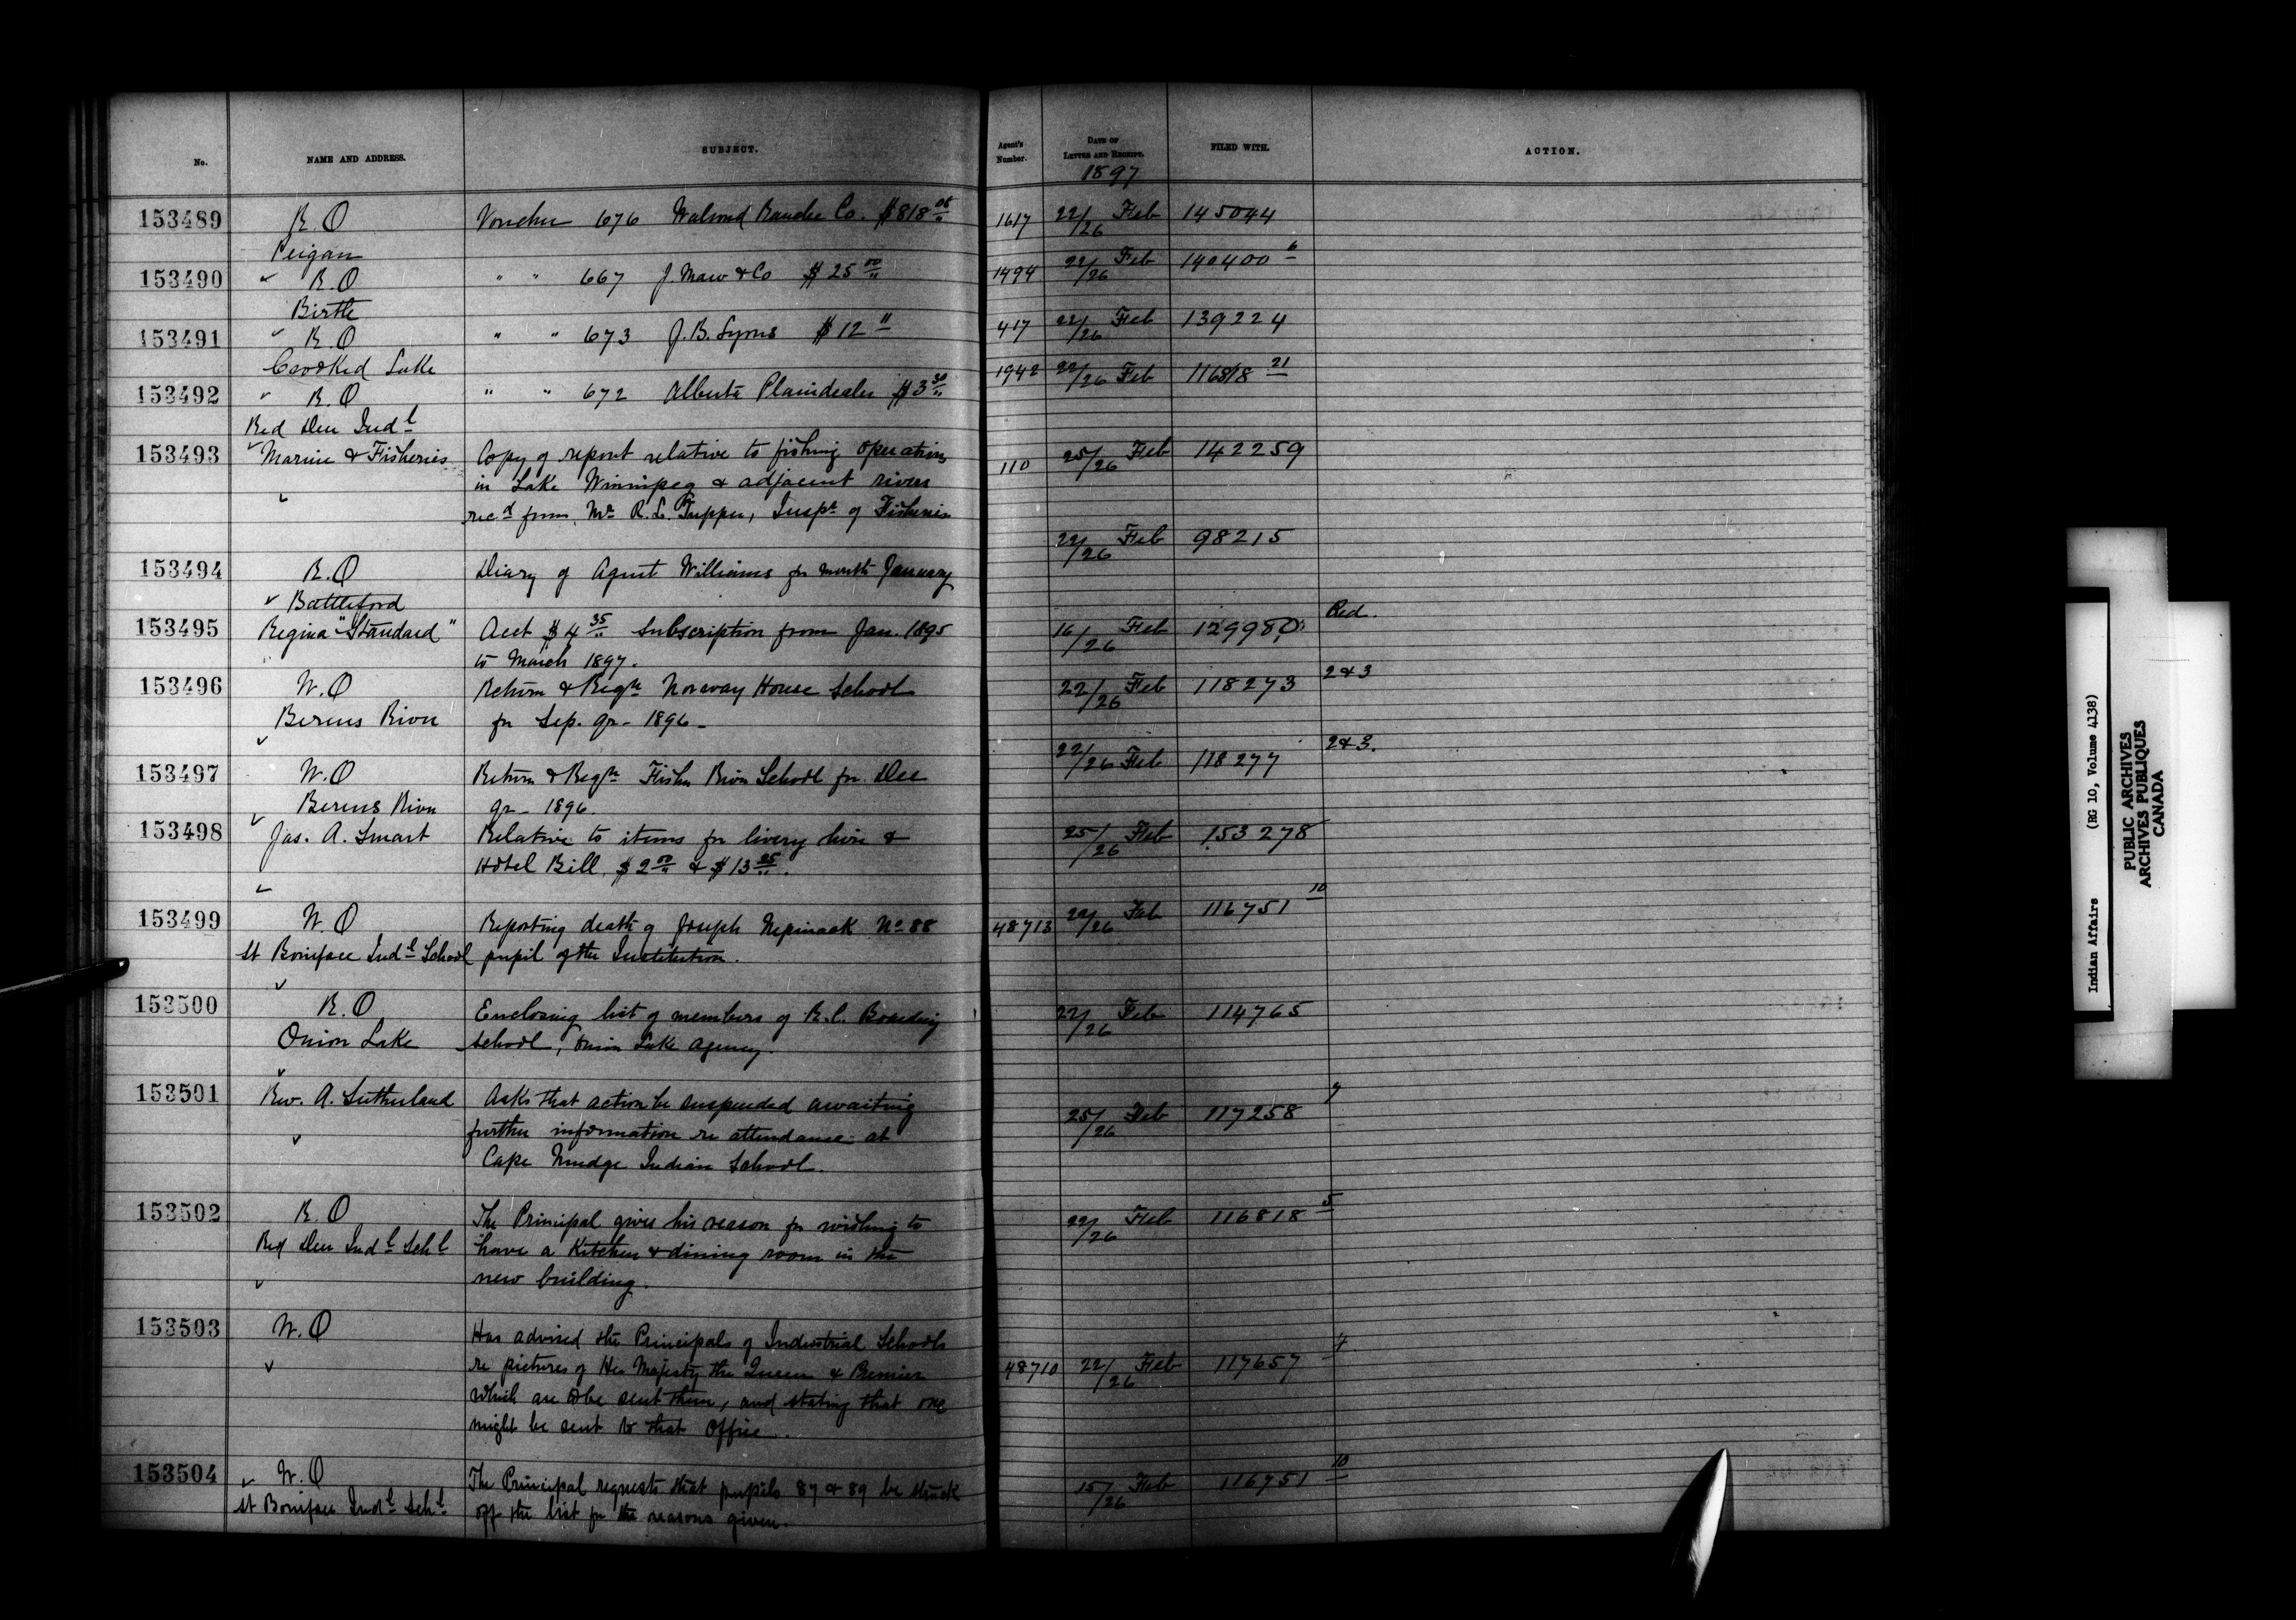 No. NAME AND ADDRESS. SUBJECT. Agent's Number. DATE OF LETTER AND RECEIPT. FILED WITH. ACTION.
1897
153489 R.O Voucher 676 Walrond Ranche Co. $818 08/" 1617 22/26 Feb 145044
Peigan
153490 " R.O " " 667 J. Maw & Co $25 00/" 1494 22/26 Feb 140400 6
Birtle
153491 " R.O " " 673 J.B. Lyons $12 " 417 22/26 Feb 139224
Crooked Lake
153492 " R.O " " 672 Alberta Plaindealer $3 30/" 1942 22/26 Feb 116818 21
Red Deer Indl
153493 Marine & Fisheries Copy of report relative to fishing operations 110 25/26 Feb 142259
in Lake Winnipeg & adjacent rivers
recd from Mr R. L. Tupper, Inspr of Fisheries
153494 R.O Diary of Agent Williams for month January 22/26 Feb 98215
Battleford
153495 Regina "Standard" Acct $4 35/" subscription from Jan. 1895 16/26 Feb 129980
to March 1897.
153496 W.O Return & Regtr Norway House School 22/26 Feb 118273 2&3
Berens River for Sep. qr - 1896 -
153497 W.O Return & Regtr Fisher River School for Dec 22/26 Feb 118277 2&3.
Berens River qr - 1896.
153498 Jas. A. Smart Relative to items for livery hire & 25/26 Feb 153278
Hotel Bill, $2 00/" & $13 25/".
153499 W.O Reporting death of Joseph Nepinaak No 88 48713 22/26 Feb 116751 10
St Boniface Indl School pupil of the Institution.
153500 R.O Enclosing list of members of R.C. Boarding 22/26 Feb 114765
Onion Lake School, Onion Lake Agency.
153501 Rev. A. Sutherland Asks that action be suspended awaiting 25/26 Feb 117258 7
further information re attendance at
Cape Mudge Indian School.
153502 R.O The Principal gives his reason for wishing to 22/26 Feb 116818 5
Red Deer Indl Schl have a Kitchen & dining room in the
new building.
153503 W.O Has advised the Principals of Industrial Schools
re pictures of Her Majesty the Queen & Premier 48710 22/26 Feb 117657 4
which are to be sent them, and stating that one
might be sent to that office.
153504 W.O The Principal requests that pupils 87 & 89 be struck 15/26 Feb 116751 10
St Boniface Indl Schl off the list for the reasons given.
Indian Affairs (RG 10, Volume 4138)
PUBLIC ARCHIVES
ARCHIVES PUBLIQUES
CANADA